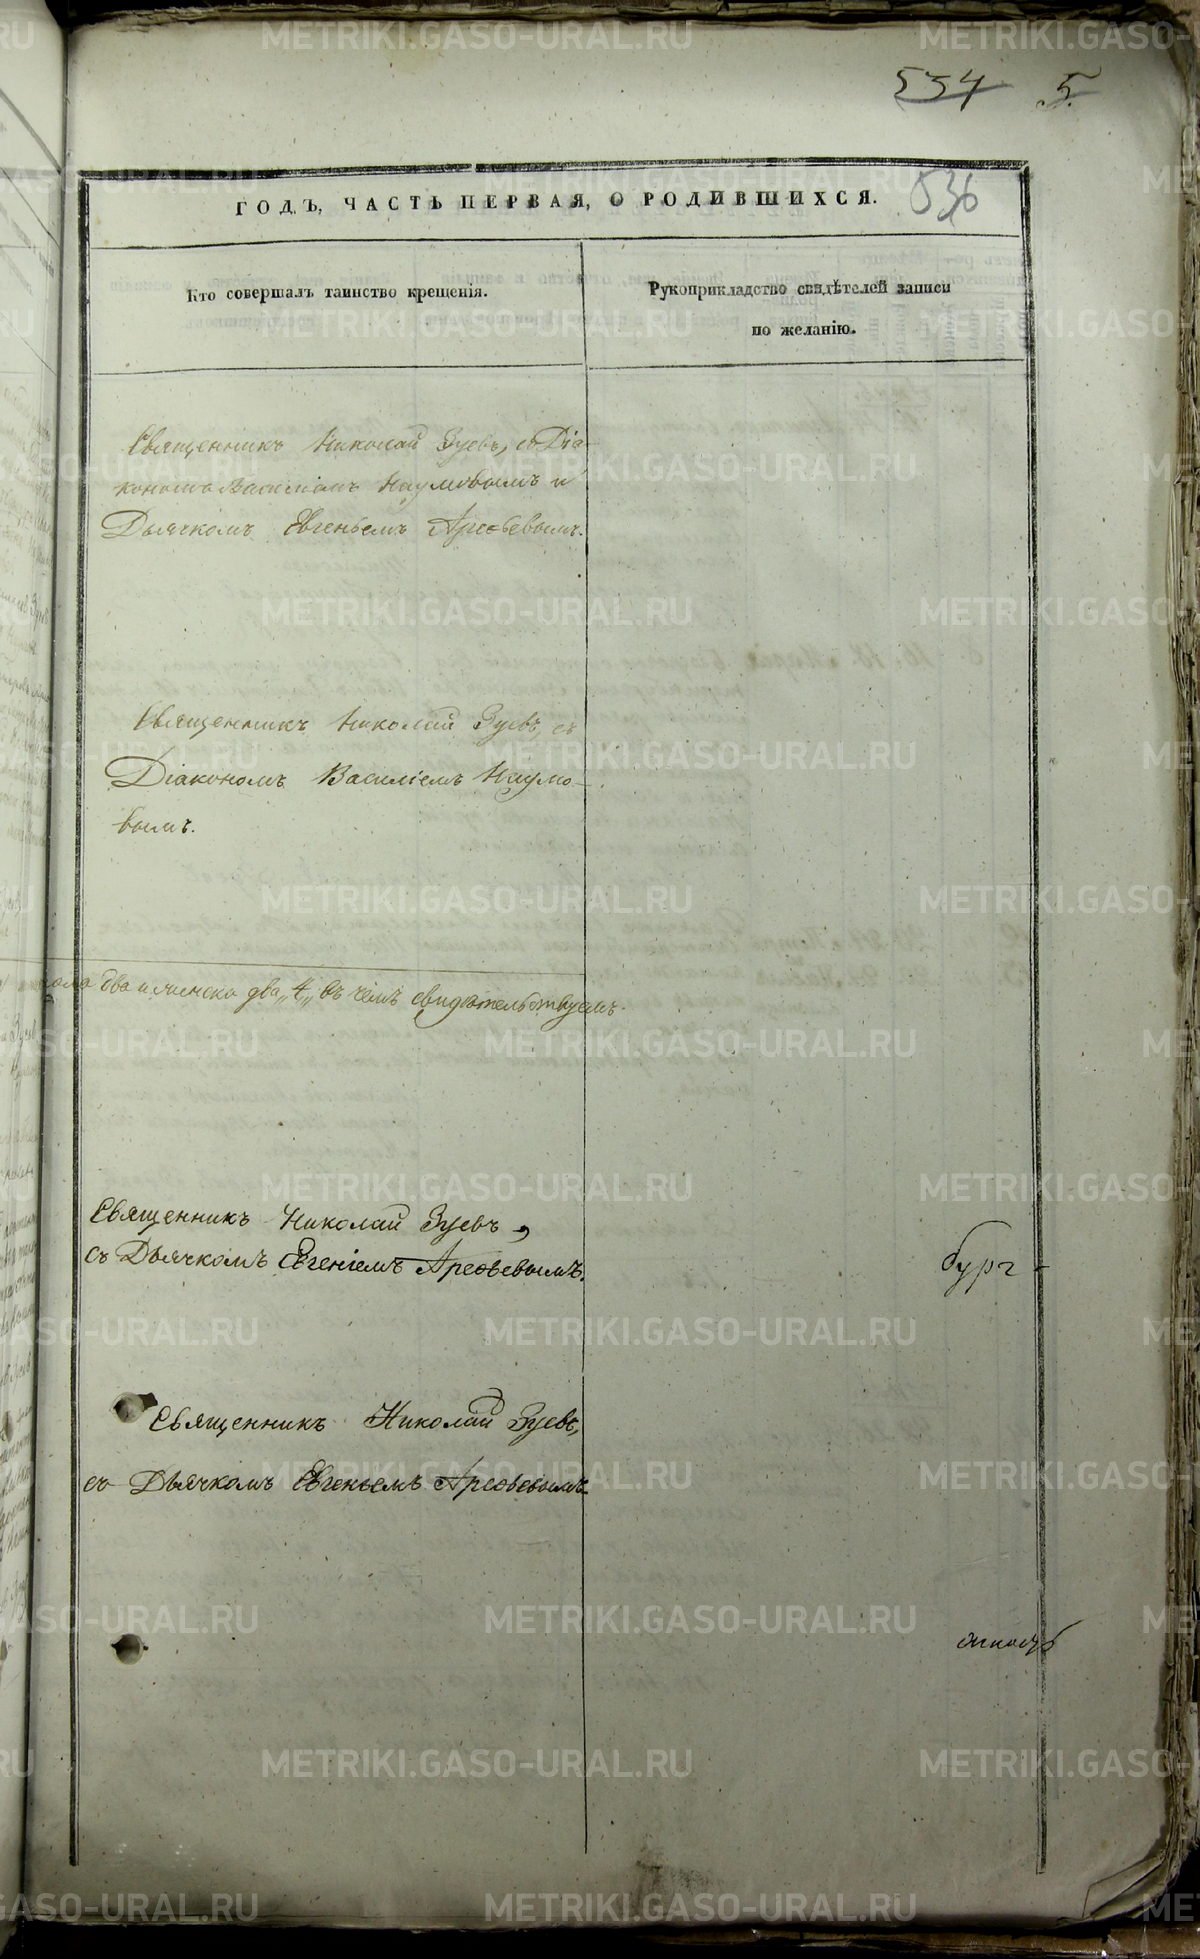 534 5.
536
ГОДЪ, ЧАСТЬ ПЕРВАЯ, О РОДИВШИХСЯ.
Кто совершалъ таинство крещенія.
Рукоприкладство свидѣтелей записи
по желанію.
Священникъ Николай Зуевъ, съ Діа-
кономъ Василіемъ Наумовымъ и
Дьячкомъ Евгеньемъ Арефьевымъ.
Священникъ Николай Зуевъ, съ
Діакономъ Василіемъ Наумо-
вымъ.
пола два и женска два „4„ въ чемъ свидѣтельствуемъ.
Священникъ Николай Зуевъ,
съ Дьячкомъ Евгеніемъ Арефьевымъ.
бург
Священникъ Николай Зуевъ,
съ Дьячкомъ Евгеньемъ Арефьевымъ
METRIKI.GASO-URAL.RU